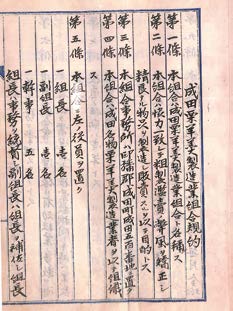 成田栗羊羹製造業組合規約
第一條 本組合ハ成田栗羊羹製造業組合ト名稱ス
第二條 本組合ハ協力一致シ粗製濫賣ノ弊風ヲ矯正シ
精良ナル物品ヲ製造シ販賣スルヲ以テ目的トス
第三條 本組合事務所ハ印旛郡成田町成田五百 番地ニ置ク
第四條 本組合ハ成田名物栗羊羹製造業者ヲ以テ組織
ス
第五條 本組合ニ左ノ役員ヲ置ク
一組長 壱名
一副組長 壱名
一幹事 五名
組長ハ事務ヲ総轄シ副組長ハ組長ヲ補佐シ組長